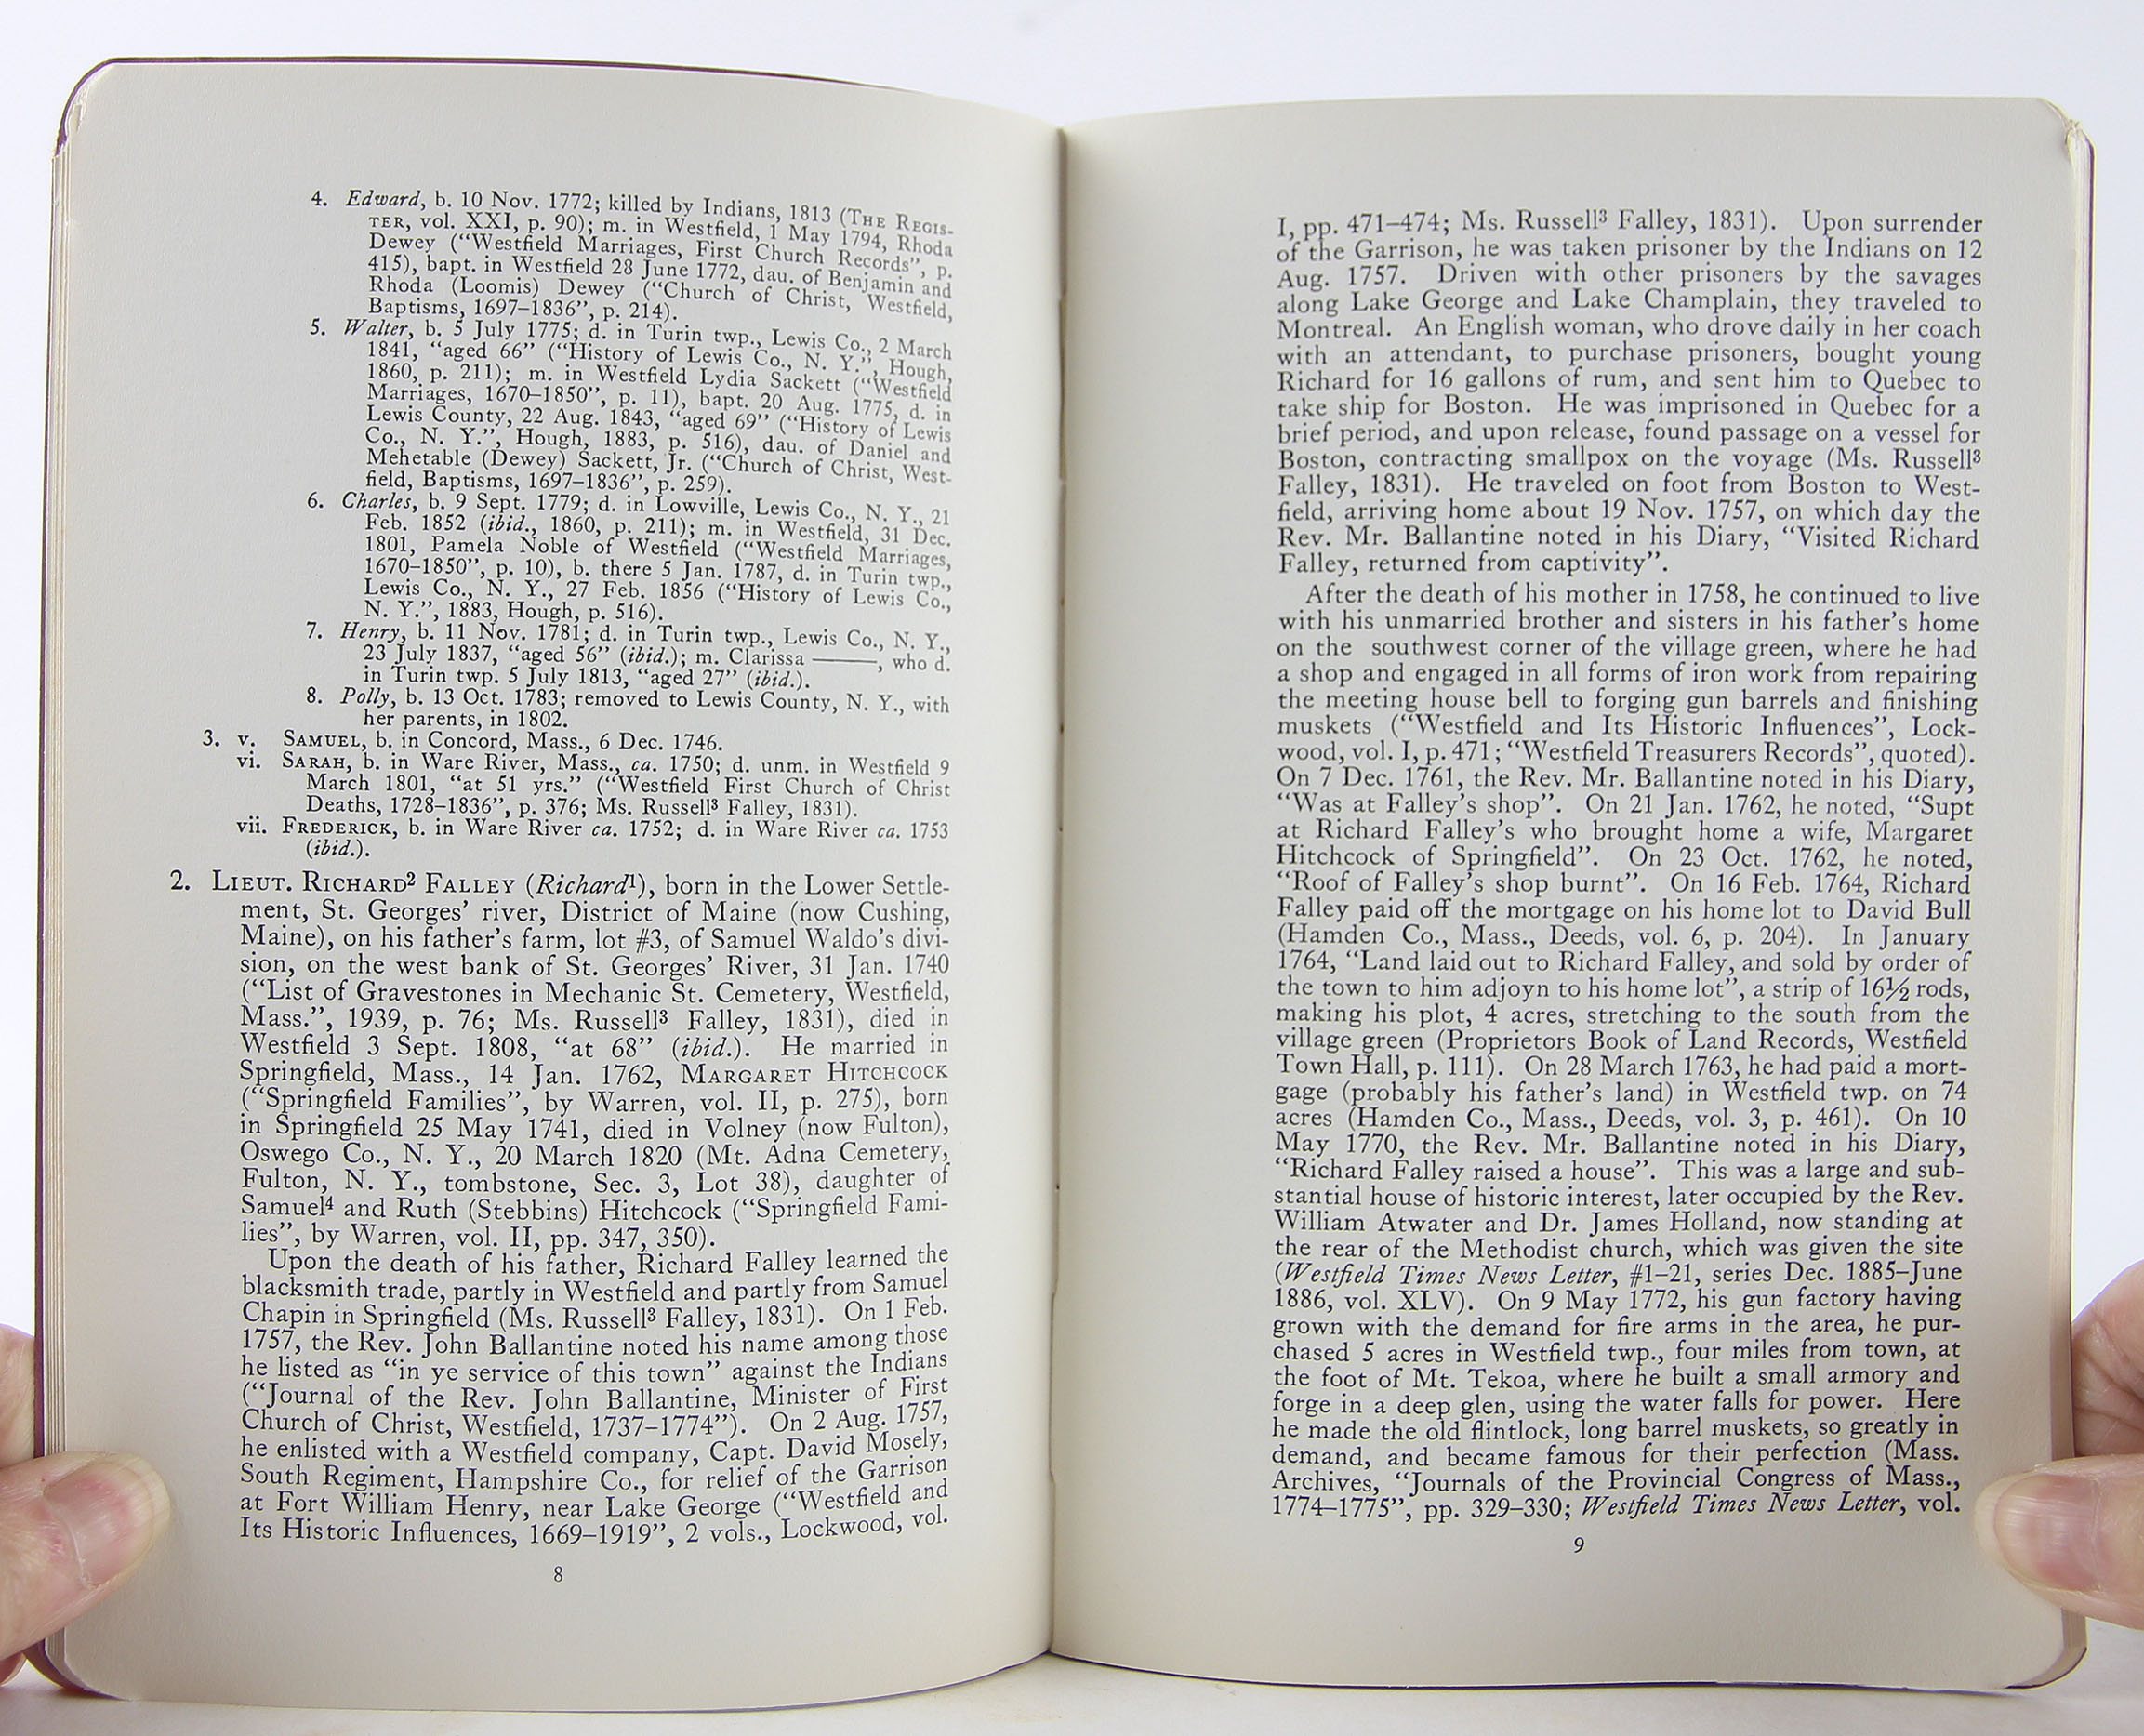 4. Edward, b. 10 Nov. 1772; killed by Indians, 1813 (THE REGIS-
TER, vol. XXI, p. 90); m. in Westfield, 1 May 1794, Rhoda
Dewey (“Westfield Marriages, First Church Records”, p.
415), bapt. in Westfield 28 June 1772, dau. of Benjamin and
Rhoda (Loomis) Dewey (“Church of Christ, Westfield,
Baptisms, 1697–1836”, p. 214).
5. Walter, b. 5 July 1775; d. in Turin twp., Lewis Co., 2 March
1841, “aged 66” (“History of Lewis Co., N. Y.”, Hough,
1860, p. 211); m. in Westfield Lydia Sackett (“Westfield
Marriages, 1670–1850”, p. 11), bapt. 20 Aug. 1775, d. in
Lewis County, 22 Aug. 1843, “aged 69” (“History of Lewis
Co., N. Y.”, Hough, 1883, p. 516), dau. of Daniel and
Mehetable (Dewey) Sackett, Jr. (“Church of Christ, West-
field, Baptisms, 1697–1836”, p. 259).
6. Charles, b. 9 Sept. 1779; d. in Lowville, Lewis Co., N. Y., 21
Feb. 1852 (ibid., 1860, p. 211); m. in Westfield, 31 Dec.
1801, Pamela Noble of Westfield (“Westfield Marriages,
1670–1850”, p. 10), b. there 5 Jan. 1787, d. in Turin twp.,
Lewis Co., N. Y., 27 Feb. 1856 (“History of Lewis Co.,
N. Y.”, 1883, Hough, p. 516).
7. Henry, b. 11 Nov. 1781; d. in Turin twp., Lewis Co., N. Y.,
23 July 1837, “aged 56” (ibid.); m. Clarissa ———, who d.
in Turin twp. 5 July 1813, “aged 27” (ibid.).
8. Polly, b. 13 Oct. 1783; removed to Lewis County, N. Y., with
her parents, in 1802.
3. v. SAMUEL, b. in Concord, Mass., 6 Dec. 1746.
vi. SARAH, b. in Ware River, Mass., ca. 1750; d. unm. in Westfield 9
March 1801, “at 51 yrs.” (“Westfield First Church of Christ
Deaths, 1728–1836”, p. 376; Ms. Russell³ Falley, 1831).
vii. FREDERICK, b. in Ware River ca. 1752; d. in Ware River ca. 1753
(ibid.).
2. LIEUT. RICHARD² FALLEY (Richard¹), born in the Lower Settle-
ment, St. Georges’ river, District of Maine (now Cushing,
Maine), on his father’s farm, lot #3, of Samuel Waldo’s divi-
sion, on the west bank of St. Georges’ River, 31 Jan. 1740
(“List of Gravestones in Mechanic St. Cemetery, Westfield,
Mass.”, 1939, p. 76; Ms. Russell³ Falley, 1831), died in
Westfield 3 Sept. 1808, “at 68” (ibid.). He married in
Springfield, Mass., 14 Jan. 1762, MARGARET HITCHCOCK
(“Springfield Families”, by Warren, vol. II, p. 275), born
in Springfield 25 May 1741, died in Volney (now Fulton),
Oswego Co., N. Y., 20 March 1820 (Mt. Adna Cemetery,
Fulton, N. Y., tombstone, Sec. 3, Lot 38), daughter of
Samuel⁴ and Ruth (Stebbins) Hitchcock (“Springfield Fami-
lies”, by Warren, vol. II, pp. 347, 350).
Upon the death of his father, Richard Falley learned the
blacksmith trade, partly in Westfield and partly from Samuel
Chapin in Springfield (Ms. Russell³ Falley, 1831). On 1 Feb.
1757, the Rev. John Ballantine noted his name among those
he listed as “in ye service of this town” against the Indians
(“Journal of the Rev. John Ballantine, Minister of First
Church of Christ, Westfield, 1737–1774”). On 2 Aug. 1757,
he enlisted with a Westfield company, Capt. David Mosely,
South Regiment, Hampshire Co., for relief of the Garrison
at Fort William Henry, near Lake George (“Westfield and
Its Historic Influences, 1669–1919”, 2 vols., Lockwood, vol.
8
I, pp. 471–474; Ms. Russell³ Falley, 1831). Upon surrender
of the Garrison, he was taken prisoner by the Indians on 12
Aug. 1757. Driven with other prisoners by the savages
along Lake George and Lake Champlain, they traveled to
Montreal. An English woman, who drove daily in her coach
with an attendant, to purchase prisoners, bought young
Richard for 16 gallons of rum, and sent him to Quebec to
take ship for Boston. He was imprisoned in Quebec for a
brief period, and upon release, found passage on a vessel for
Boston, contracting smallpox on the voyage (Ms. Russell³
Falley, 1831). He traveled on foot from Boston to West-
field, arriving home about 19 Nov. 1757, on which day the
Rev. Mr. Ballantine noted in his Diary, “Visited Richard
Falley, returned from captivity”.
After the death of his mother in 1758, he continued to live
with his unmarried brother and sisters in his father’s home
on the southwest corner of the village green, where he had
a shop and engaged in all forms of iron work from repairing
the meeting house bell to forging gun barrels and finishing
muskets (“Westfield and Its Historic Influences”, Lock-
wood, vol. I, p. 471; “Westfield Treasurers Records”, quoted).
On 7 Dec. 1761, the Rev. Mr. Ballantine noted in his Diary,
“Was at Falley’s shop”. On 21 Jan. 1762, he noted, “Supt
at Richard Falley’s who brought home a wife, Margaret
Hitchcock of Springfield”. On 23 Oct. 1762, he noted,
“Roof of Falley’s shop burnt”. On 16 Feb. 1764, Richard
Falley paid off the mortgage on his home lot to David Bull
(Hamden Co., Mass., Deeds, vol. 6, p. 204). In January
1764, “Land laid out to Richard Falley, and sold by order of
the town to him adjoyn to his home lot”, a strip of 16½ rods,
making his plot, 4 acres, stretching to the south from the
village green (Proprietors Book of Land Records, Westfield
Town Hall, p. 111). On 28 March 1763, he had paid a mort-
gage (probably his father’s land) in Westfield twp. on 74
acres (Hamden Co., Mass., Deeds, vol. 3, p. 461). On 10
May 1770, the Rev. Mr. Ballantine noted in his Diary,
“Richard Falley raised a house”. This was a large and sub-
stantial house of historic interest, later occupied by the Rev.
William Atwater and Dr. James Holland, now standing at
the rear of the Methodist church, which was given the site
(Westfield Times News Letter, #1–21, series Dec. 1885–June
1886, vol. XLV). On 9 May 1772, his gun factory having
grown with the demand for fire arms in the area, he pur-
chased 5 acres in Westfield twp., four miles from town, at
the foot of Mt. Tekoa, where he built a small armory and
forge in a deep glen, using the water falls for power. Here
he made the old flintlock, long barrel muskets, so greatly in
demand, and became famous for their perfection (Mass.
Archives, “Journals of the Provincial Congress of Mass.,
1774–1775”, pp. 329–330; Westfield Times News Letter, vol.
9